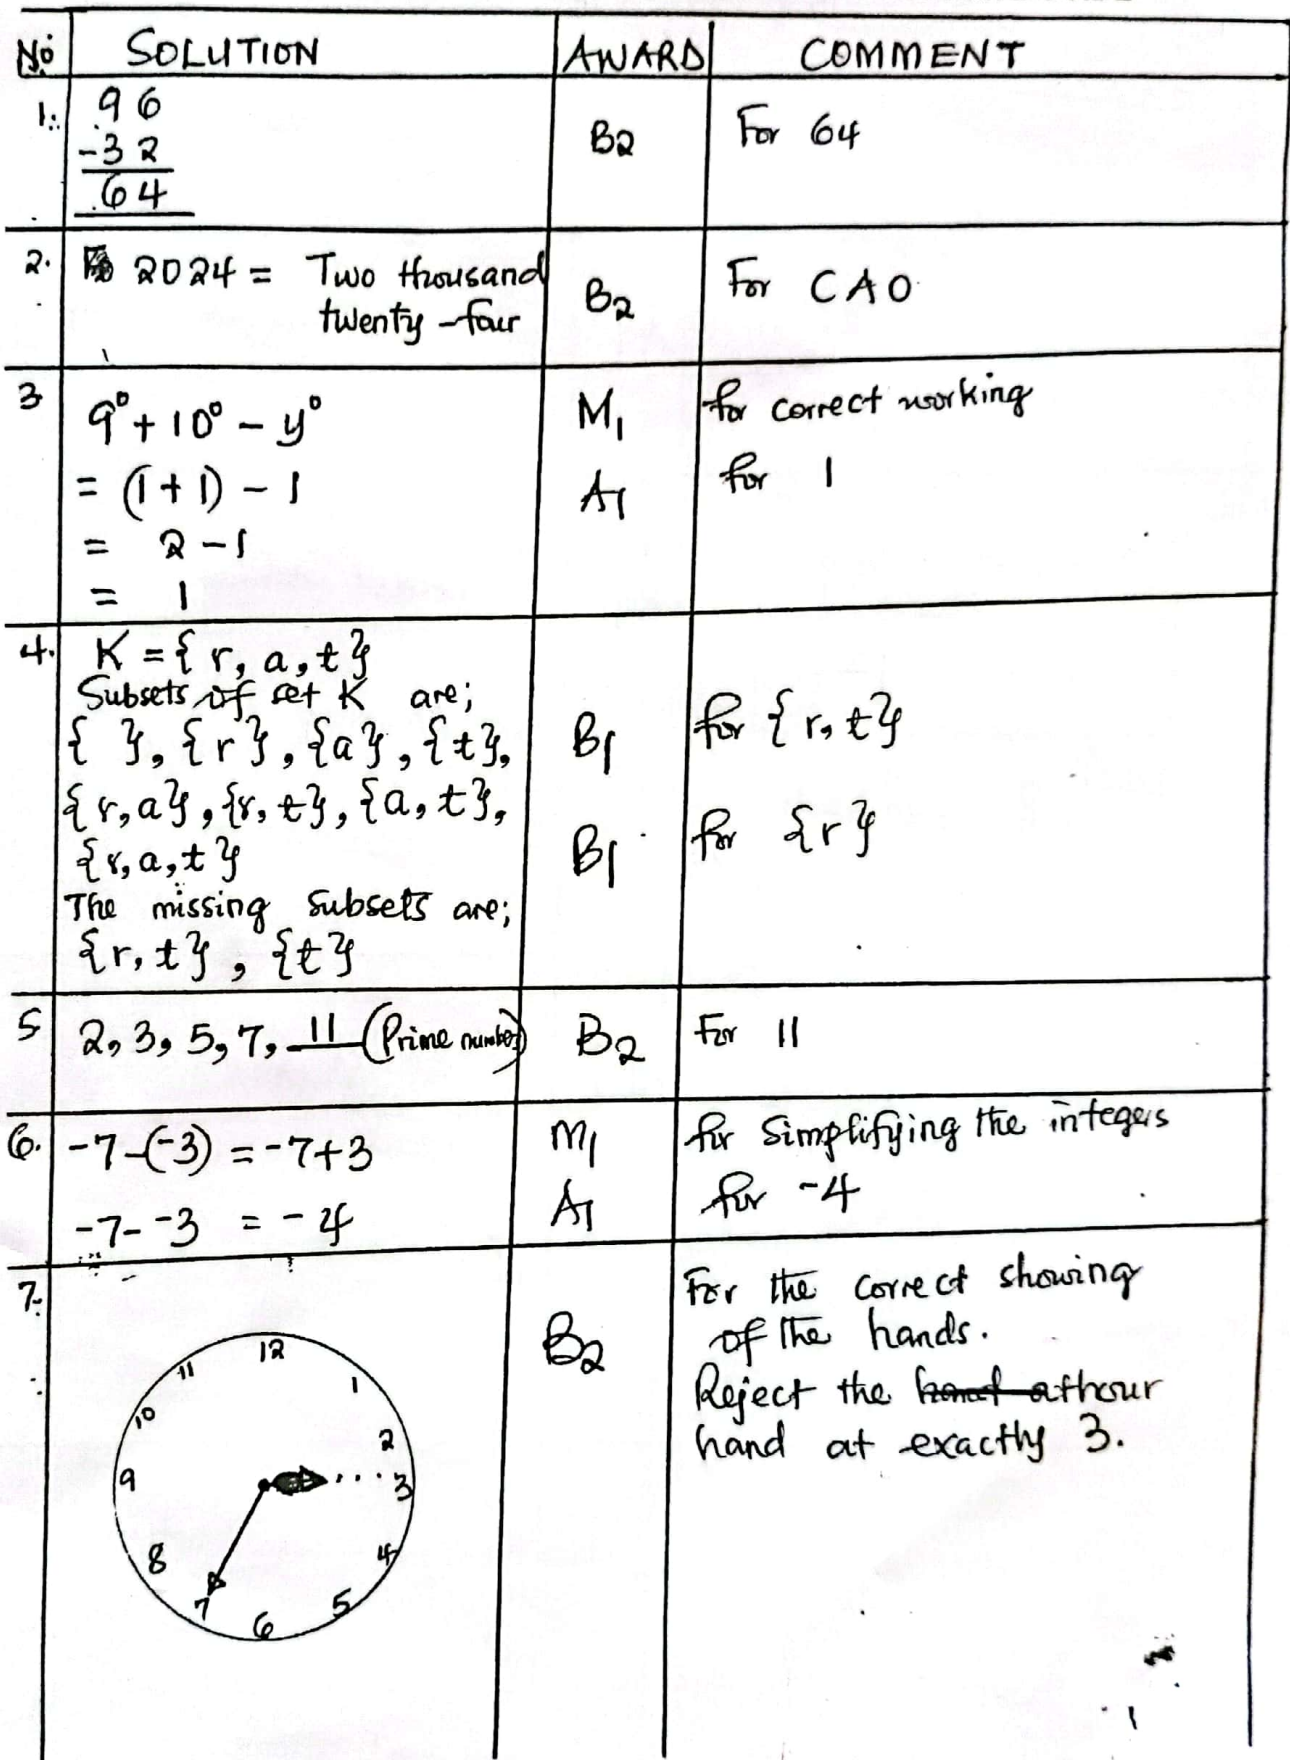 No SOLUTION AWARD COMMENT
1. 96
-32
64
B2 For 64
2. 2024 = Two thousand
twenty-four
B2 For CAO
3 9⁰ + 10⁰ - y⁰
= (1+1) - 1
= 2 - 1
= 1
M1 for correct working
A1 for 1
4. K = {r, a, t}
Subsets of set K are;
{ }, {r}, {a}, {t},
{r,a}, {r,t}, {a,t},
{r,a,t}
The missing subsets are;
{r,t}, {t}
B1 for {r,t}
B1 for {r}
5 2, 3, 5, 7, 11 (Prime number)
B2 For 11
6. -7-(-3) = -7+3
-7- -3 = -4
M1 for Simplifying the integers
A1 for -4
7.
12
11
1
10
2
9
3
8
4
7
5
6
B2 For the correct showing
of the hands.
Reject the hour
hand at exactly 3.
1